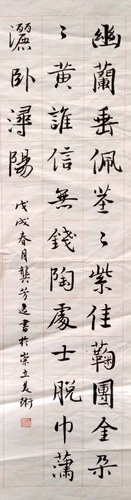 幽蘭垂佩荃〻紫佳鞠團金朵
〻黃誰信無錢陶處士脫巾蕭
灑卧潯陽
戊戌春月龔芳逸書於崇立美術